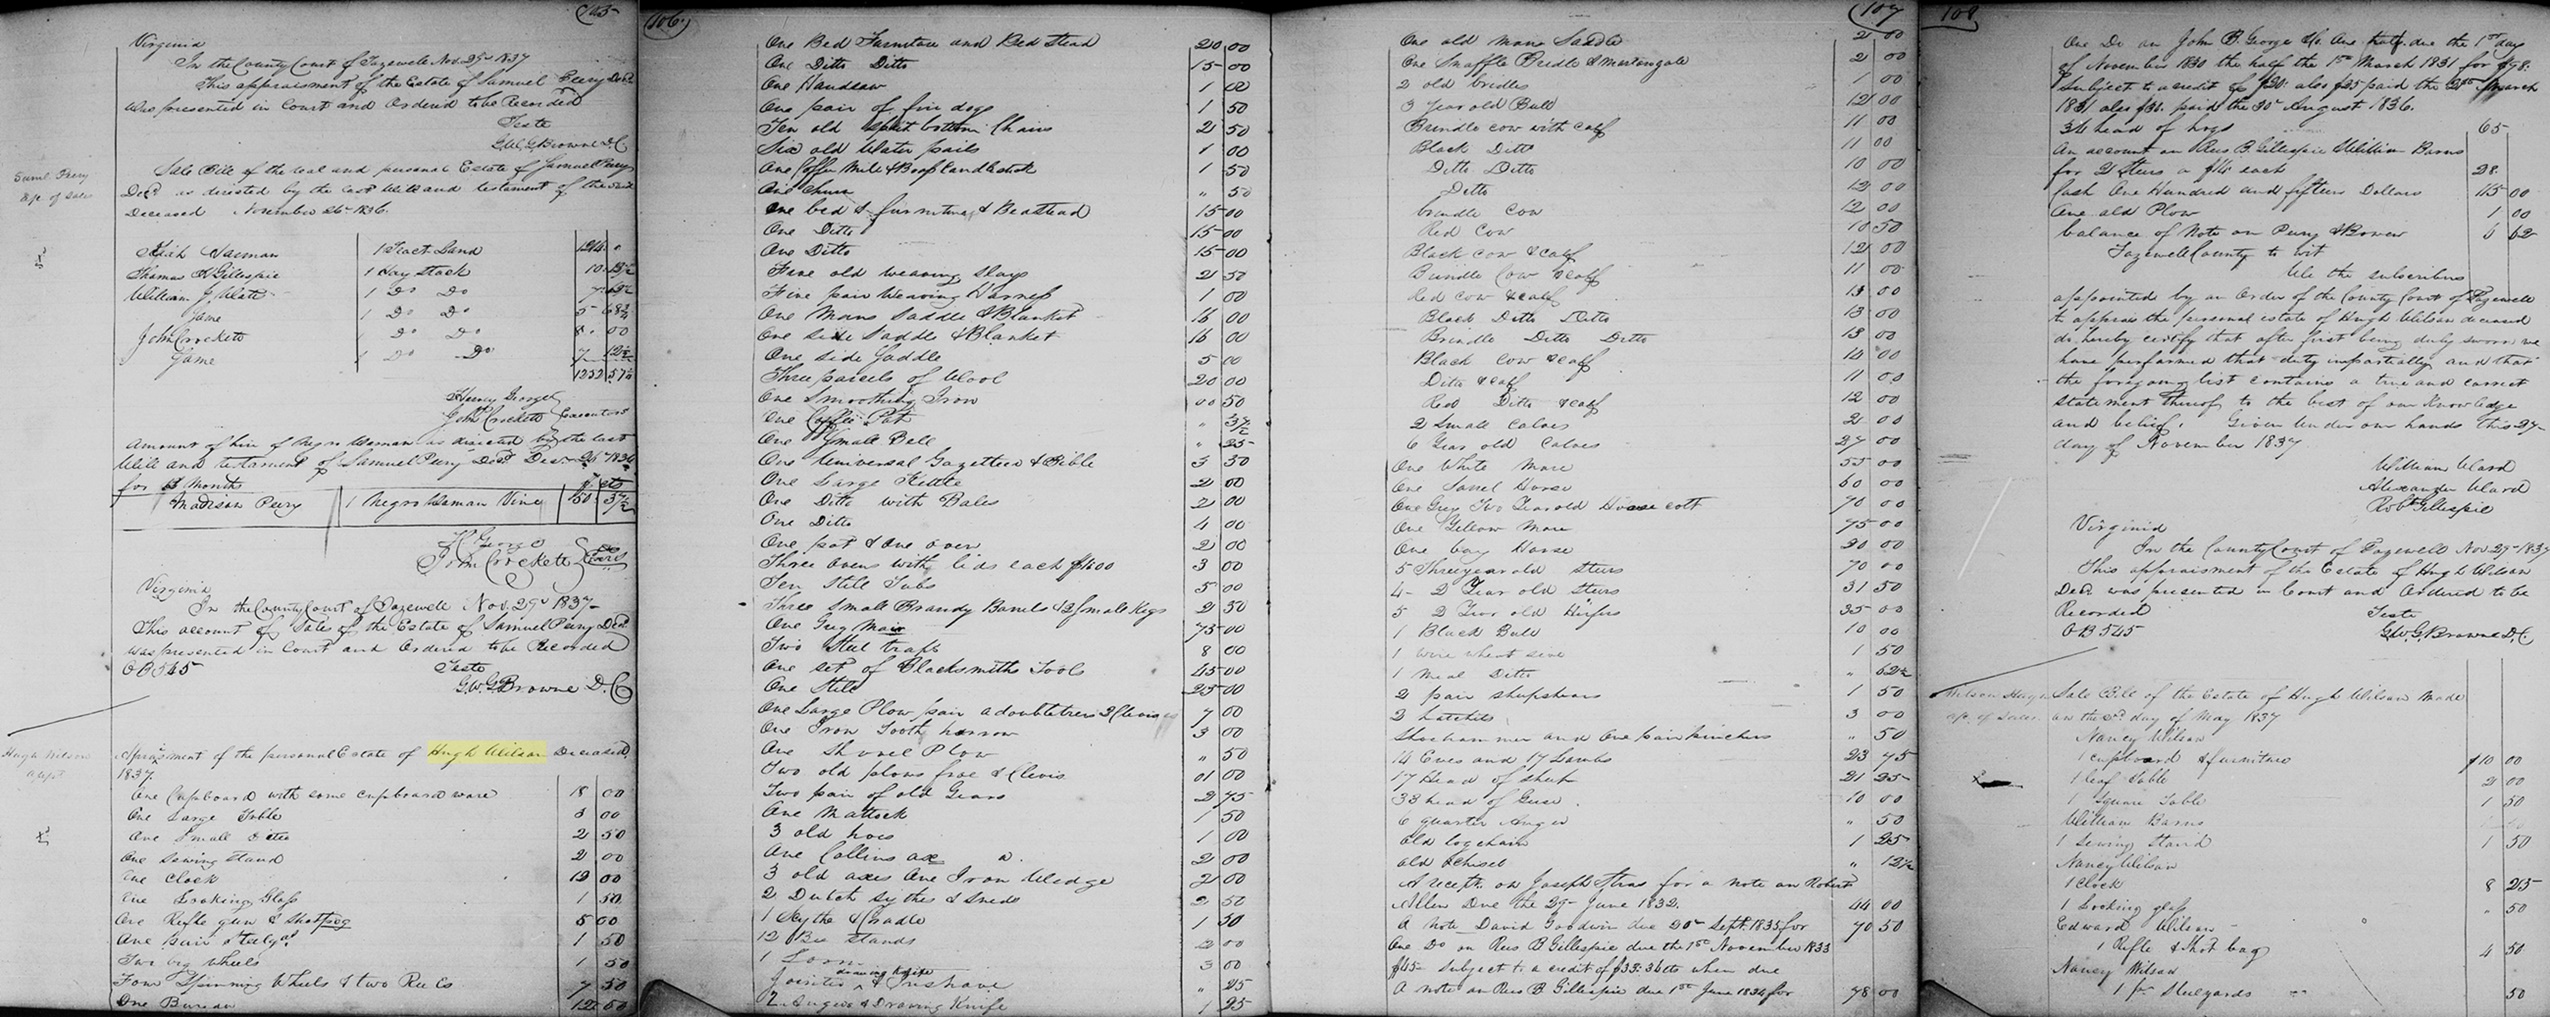 105
Virginia
In the County Court of Tazewell Nov. 29th 1837
This appraisment of the Estate of Samuel Peery Decd.
was presented in Court and Ordered to be Recorded
Teste
G.W.G. Browne D.C.
Saml Peery
a/c. of Sales
Sale Bill of the real and personal Estate of Samuel Peery
Decd. as directed by the last Will and testament of the said
deceased November 26th 1836.
Harman 1 Tract Land 1214. 0
Thomas Gillespie 1 Hay Stack 10.
William G. Watts 1 Do Do 7
Same 1 Do Do 5 68¾
John Crockett 1 Do Do 8. 00
Same 1 Do Do 7 12½
1252 57½
Harvey George
John Crockett Executors
Amount of hire of Negro Woman as directed by the last
Will and testament of Samuel Peery Decd. Dec. 26th 1836
for months $ cts
Madison Peery 1 Negro Woman Vine 50 37½
H George
John Crockett Exors
Virginia
In the County Court of Tazewell Nov. 29th 1837-
This account of Sales of the Estate of Samuel Peery Decd.
was presented in Court and Ordered to be Recorded
OB 545 Teste
G.W.G. Browne D.C.
Hugh Wilson
appt
Apraisment of the personal Estate of Hugh Wilson Deceased
1837.
One Cupboard with some cupboard ware 18 00
One Large Table 3 00
One Small ditto 2 50
One Sewing Stand 2 00
One Clock 12 00
One Looking Glass 1 50
One Rifle gun & Shotbag 5 00
One pair Stealyds 1 50
Two big wheels 1 50
Four Spinning Wheels & two Reels 7 50
One Bureau 12 00
106
One Bed Furniture and Bed Stead 20 00
One Ditto Ditto 15 00
One Handsaw 1 00
One pair of fire dogs 1 50
Ten old split bottom Chairs 2 50
Six old Water pails 1 00
One Coffee Mill & Brass Candlestick 1 50
One Churn " 50
One bed & furniture & Beadstead 15 00
One Ditto 15 00
One Ditto 15 00
Five old weaving Slays 2 50
Five pair Weaving Harness 1 00
One Mans Saddle & Blanket 16 00
One side Saddle & Blanket 16 00
One side Saddle 5 00
Three parcels of Wool 20 00
One Smoothing Iron 00 50
One Coffee Pot " 37½
One Small Bell " 25
One Universal Gazetteer & Bible 3 50
One Large Kettle 2 00
One Ditto with Bales 2 00
One Ditto 4 00
One pot & One oven 2 00
Three ovens with lids each $1.00 3 00
Ten Still Tubs 5 00
Three Small Brandy Barrels & 2 small Kegs 2 50
One Grey Mair 75 00
Two Steel traps 8 00
One set of Blacksmiths Tools 45 00
One Still 25 00
One Large Plow pair a doubletrees 2 Clevises 7 00
One Iron Tooth harrow 3 00
One Shovel Plow " 50
Two old plows froe & Clevis 01 00
Two pair of old Gears 2 75
One Mattock 1 50
3 old hoes 1 00
One Collins axe 2 00
3 old axes One Iron Wedge 2 00
2 Dutch sythes & sneds 2 50
1 Scythe & Cradle 1 50
12 Bee Stands 2 00
1 Loom 3 00
Jointer drawing knife & Inshave " 25
2 Augers & Drawing Knife 1 25
107
One old mans Saddle 2 00
One Snaffle Bridle & Martengale 2 00
2 old bridles 1 00
3 Year old Bull 12 00
Brindle cow with calf 11 00
Black Ditto 11 00
Ditto Ditto 10 00
Ditto 12 00
brindle cow 12 00
Red Cow 10 50
Black cow & calf 12 00
Brindle Cow & calf 11 00
Red cow & calf 13 00
Black Ditto Ditto 13 00
Brindle Ditto Ditto 13 00
Black Cow & calf 14 00
Ditto & calf 11 00
Red Ditto & calf 12 00
2 Small Calves 2 00
6 Year old Calves 27 00
One White Mare 55 00
One Sorrel Horse 60 00
One Grey Two Year old Horse colt 70 00
One Yellow Mare 75 00
One bay Horse 20 00
5 Three year old Steers 70 00
4 - 2 Year old Steers 31 50
5 2 Year old Heifers 35 00
1 Black Bull 10 00
1 wire wheat sive 1 50
1 Meal Ditto " 62½
2 pair sheepshears 1 50
2 hatchets 3 00
Shoehammer and One pair pinchers " 50
14 Ewes and 17 Lambs 23 75
17 Head of sheep 21 25
33 head of Geese 10 00
6 quarter Auger " 50
Old logchain 1 25
Old Chisel " 12½
A recept. on Joseph Stras for a note on Robert
Allen Due the 29th June 1832. 44 00
A note David Goodwin due 20th Sept. 1835 for 70 50
One Do on Rees B Gillespie due the 1st November 1833
$45- Subject to a credit of $35.36 cts when due
A note on Rees B Gillespie due 1st June 1834 for 78 00
108
One Do on John B. George &c. One half due the 1st day
of November 1830 the half the 1st March 1831 for $78.
Subject to a credit of $20. also $25 paid the 2nd March
1831 also $31. paid the 30th August 1836.
36 head of hogs 65
An account on Rees B. Gillespie William Barns
for 2 Steers a $14 each 28
Cash One Hundred and fifteen Dollars 115 00
One old Plow 1 00
balance of Note on Peery & Bowen 6 62
Tazewell County to wit
We the subscribers
appointed by an Order of the County Court of Tazewell
to apprais the personal estate of Hugh Wilson deceased
do hereby certify that after first being duly sworn we
have performed that duty impartially and that
the foregoing list contains a true and correct
statement thereof to the best of our Knowledge
and belief. Given under our hands this 27th
day of November 1837
William Ward
Alexander Ward
Robt Gillespie
Virginia
In the County Court of Tazewell Nov 29th 1837
This appraisment of the Estate of Hugh Wilson
Decd. was presented in Court and Ordered to be
Recorded Teste
OB 545 G.W.G. Browne D.C.
Wilson Hugh
a/c. of Sales
Sale Bill of the Estate of Hugh Wilson Made
on the 3rd day of May 1837
Nancy Wilson
1 cupboard & furniture $10 00
1 leaf Table 2 00
1 Square Table 1 50
William Barns
1 Sewing Stand 1 50
Nancy Wilson
1 Clock 8 25
1 Looking glass " 50
Edward Wilson
1 Rifle & Shot bag 4 50
Nancy Wilson
1 pr Steelyards 50